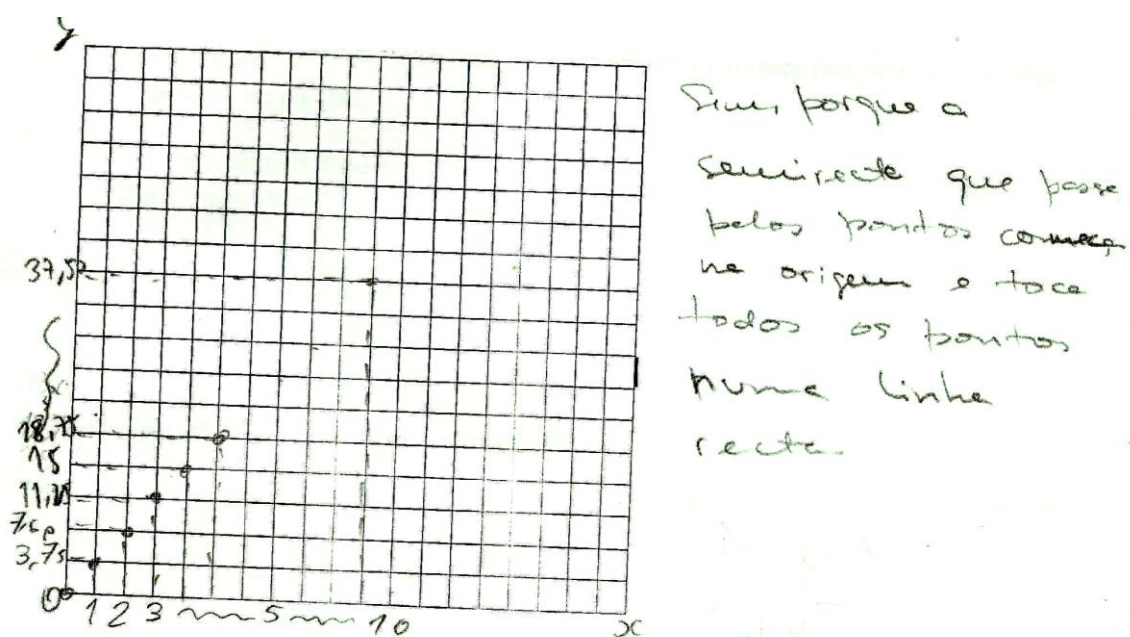 y
37,50
18,75
15
11,25
7,50
3,75
0
1 2 3 5 10 x
Sim, porque a
semirecta que passa
pelos pontos começa
na origem e toca
todos os pontos
numa linha
recta.